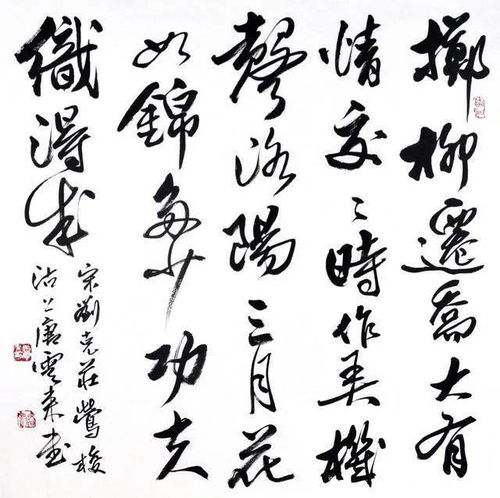 擲柳遷喬大有
情交々時作弄機
聲洛陽三月花
如錦多少功夫
織得成
宋劉克莊鶯梭
沽上唐雲來書